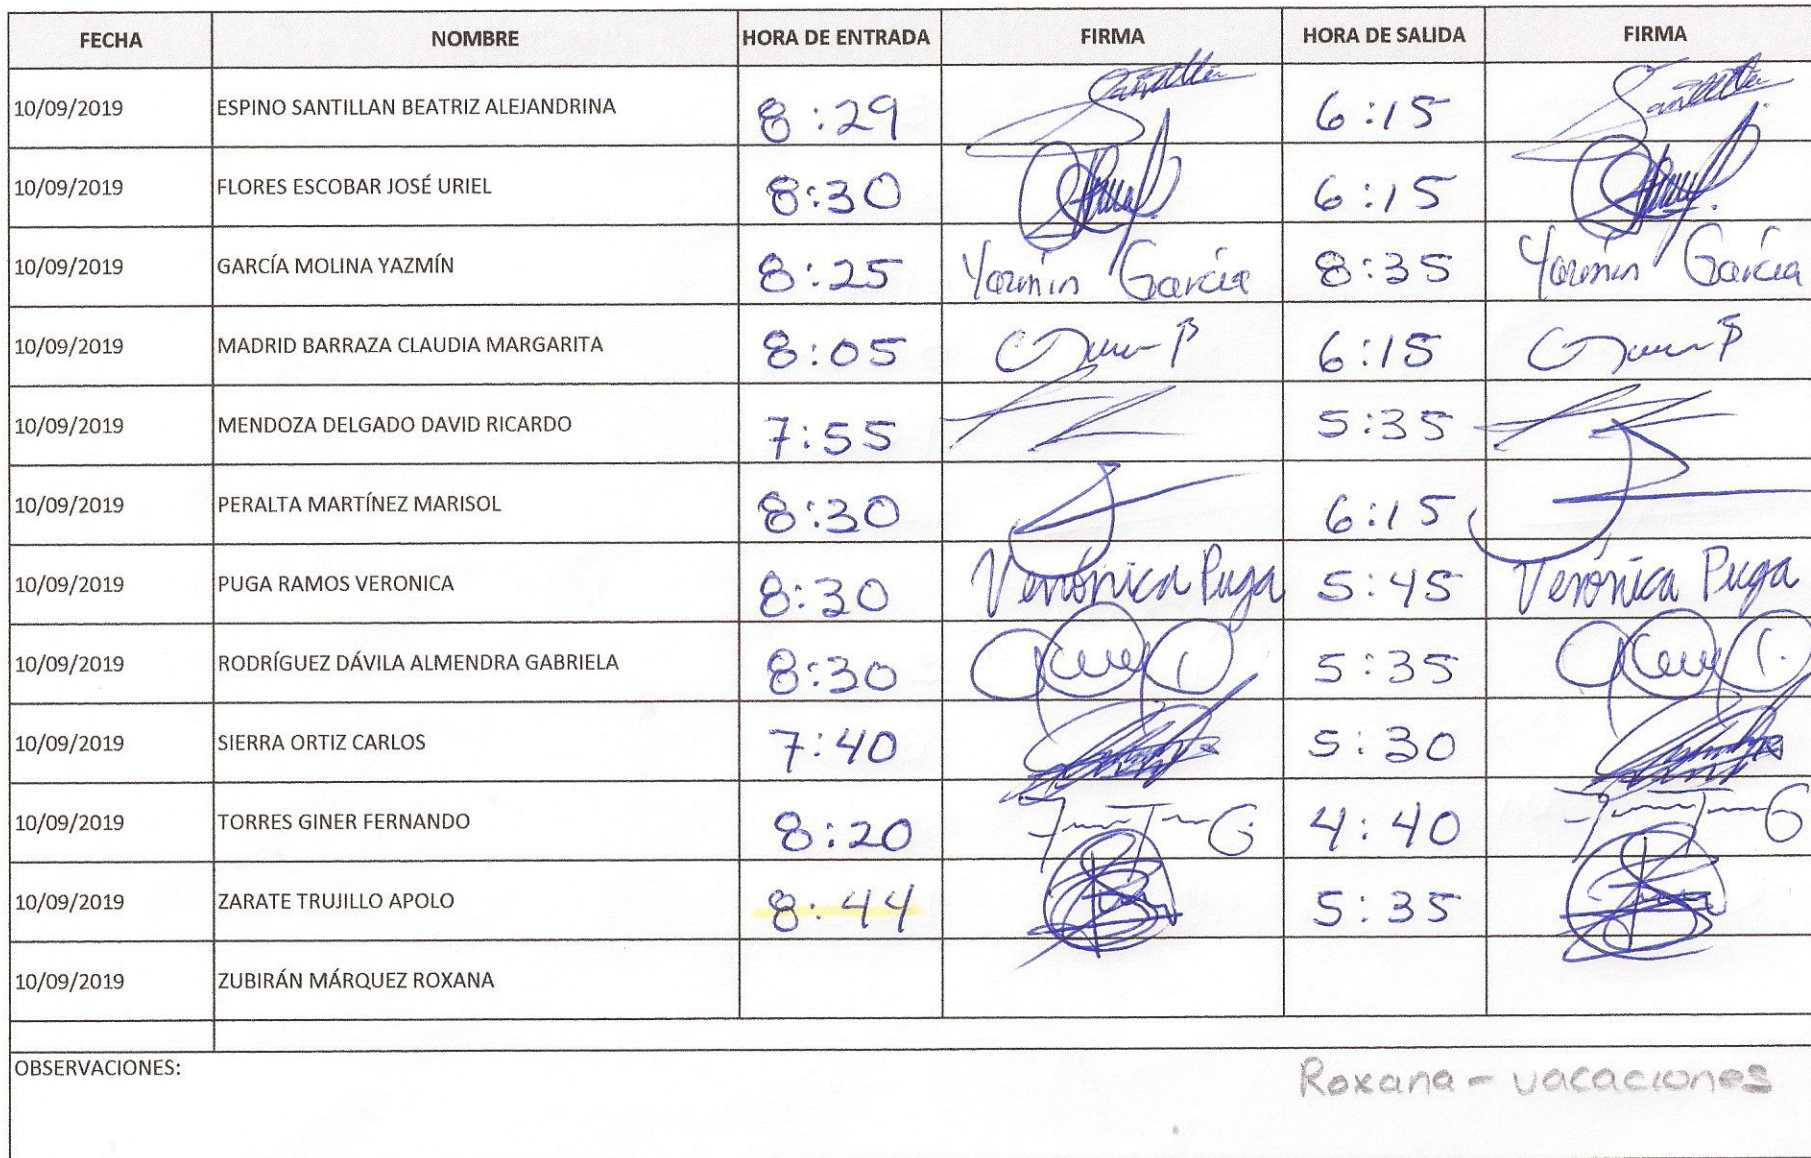 FECHA NOMBRE HORA DE ENTRADA FIRMA HORA DE SALIDA FIRMA
10/09/2019 ESPINO SANTILLAN BEATRIZ ALEJANDRINA 8:29 6:15
10/09/2019 FLORES ESCOBAR JOSÉ URIEL 8:30 6:15
10/09/2019 GARCÍA MOLINA YAZMÍN 8:25 Yazmin García 8:35 Yazmin García
10/09/2019 MADRID BARRAZA CLAUDIA MARGARITA 8:05 6:15
10/09/2019 MENDOZA DELGADO DAVID RICARDO 7:55 5:35
10/09/2019 PERALTA MARTÍNEZ MARISOL 8:30 6:15
10/09/2019 PUGA RAMOS VERONICA 8:30 Verónica Puga 5:45 Verónica Puga
10/09/2019 RODRÍGUEZ DÁVILA ALMENDRA GABRIELA 8:30 5:35
10/09/2019 SIERRA ORTIZ CARLOS 7:40 5:30
10/09/2019 TORRES GINER FERNANDO 8:20 4:40
10/09/2019 ZARATE TRUJILLO APOLO 8:44 5:35
10/09/2019 ZUBIRÁN MÁRQUEZ ROXANA
OBSERVACIONES:
Roxana - vacaciones